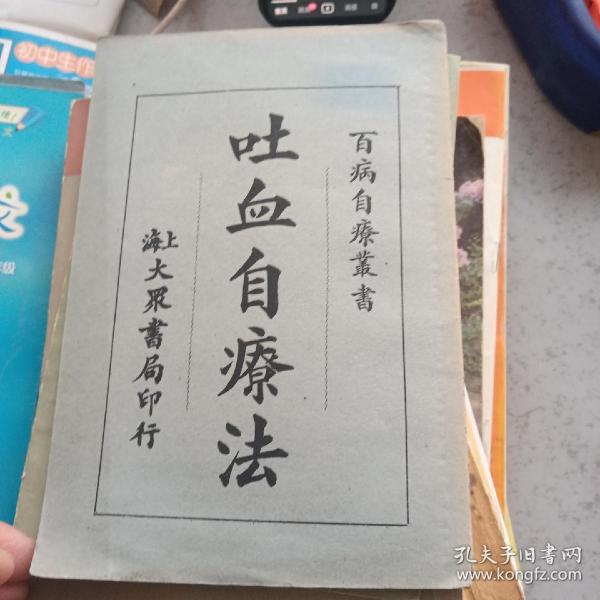 百病自療叢書
吐血自療法
上海大眾書局印行
初中生作
文
级
孔夫子旧书网
www.kongfz.com